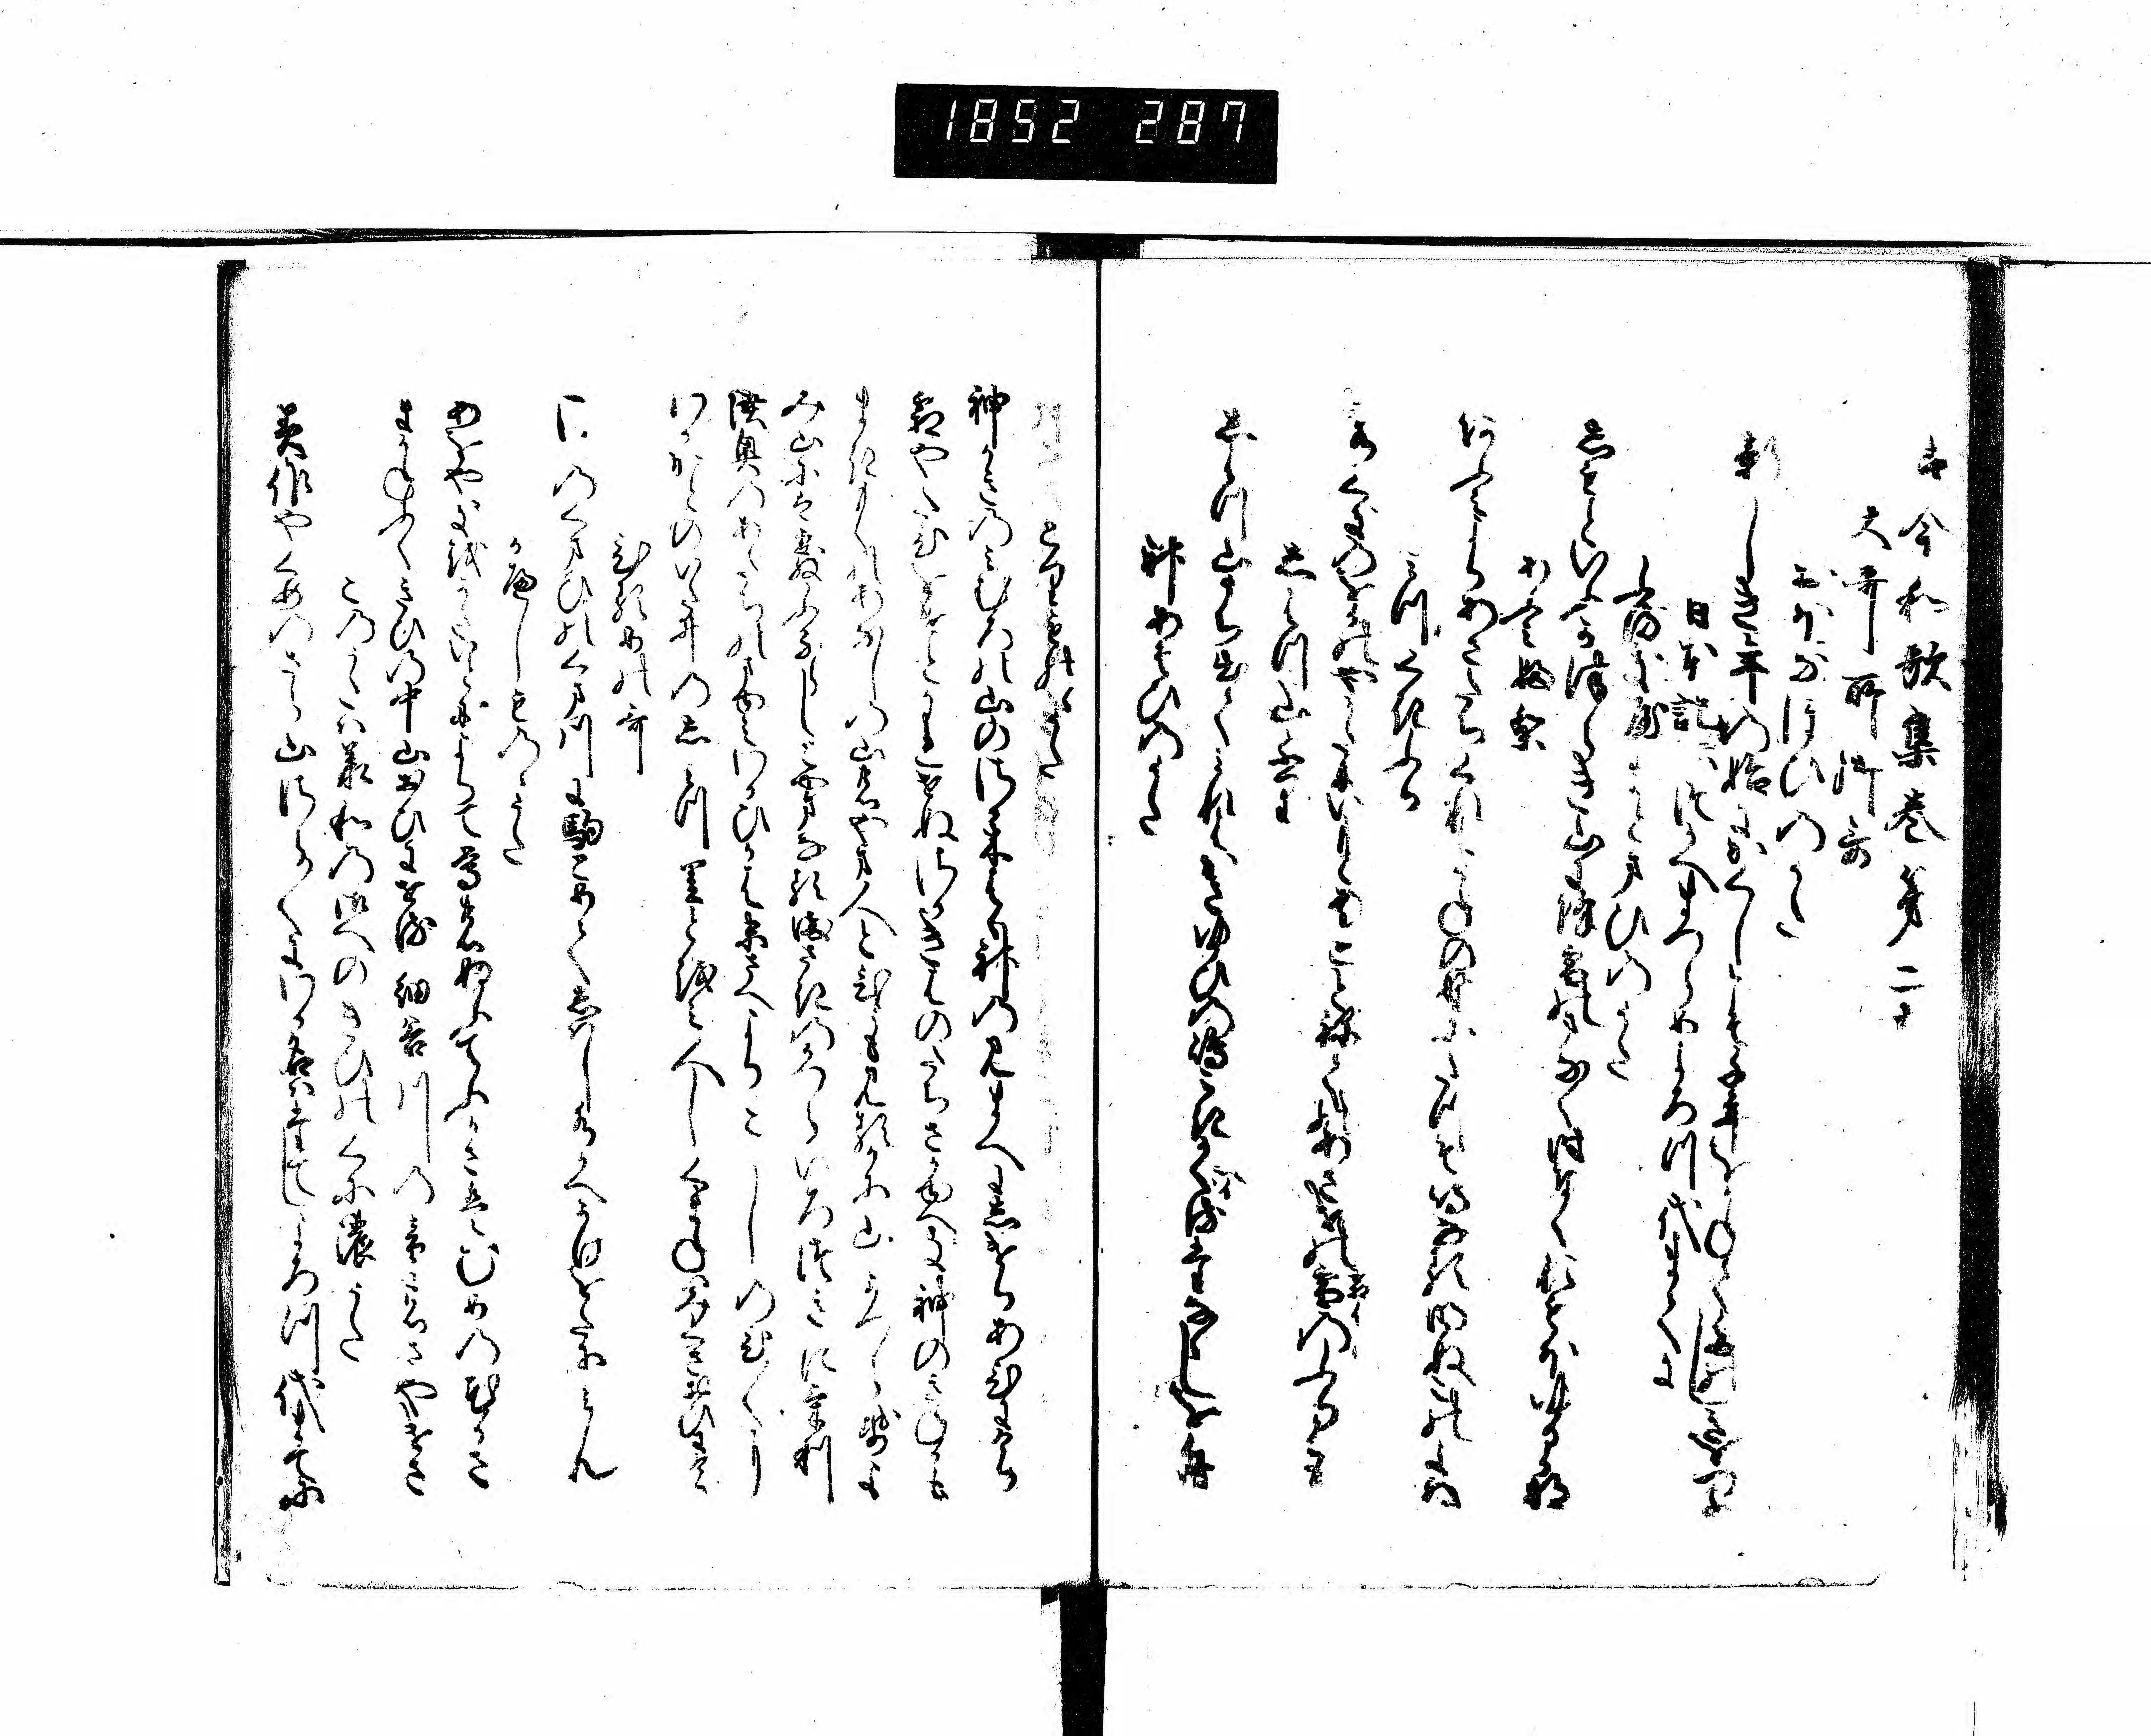 1852 287
古今和歌集巻第二十
大哥所御哥
おほなほひのうた
新しき年の始にかくしこそ千年をかねてたのしきをつめ
日本記ニハつかへまつらめよろつ代まてに
ふるきやまとまひのうた
しもとゆふかつらき山にふる雪のまなく時なくおもほゆる哉
あふみふり
近江よりあさたちくれはうねの野にたつそ鳴なる明ぬ此よは
みつくきふり
水くきのをかのやかたにいもとあれとねての朝けの霜のふりは
しはつ山ふり
しはつ山うち出てみれはかさゆひの嶋こきかくる棚なしを舟
神あそひのうた
とりものゝうた
神かきのみむろの山のさか木はは神のみまへにしけりあひにけり
霜やたひをけとかれせぬさか木はのたちさかゆへき神のきねかも
まきもくのあなしの山の山人と人も見るかに山かつらせよ
み山にはあられふるらしと山なるまさきのかつらいろつきにけり
陸奥のあたちのまゆみわかひかはすゑさへよりこしのひしのひに
わかかとのいた井のし水里とをみ人しくまねはみくさおひにけり
ひるめの哥
さゝのくまひのくま川に駒とめてしはし水かへかけをたにみん
かへしものゝうた
あをやきをかたいとによりて鴬のぬふてふかさはむめの花かさ
まかねふくきひの中山おひにせる細谷川のをとのさやけさ
このうたは承和の御へのきひのくにのうた
美作やくめのさら山さらさらにわか名はたてしよろつ代まてに